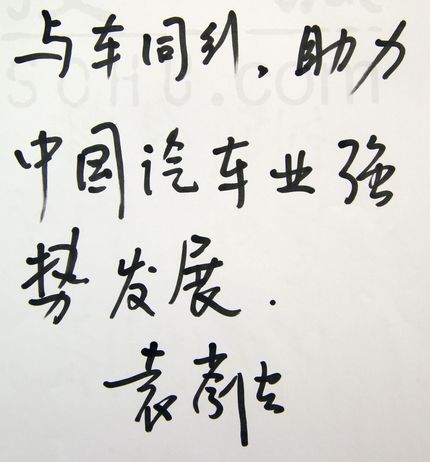 SOHU.com
与车同行,助力
中国汽车业强
势发展.
袁